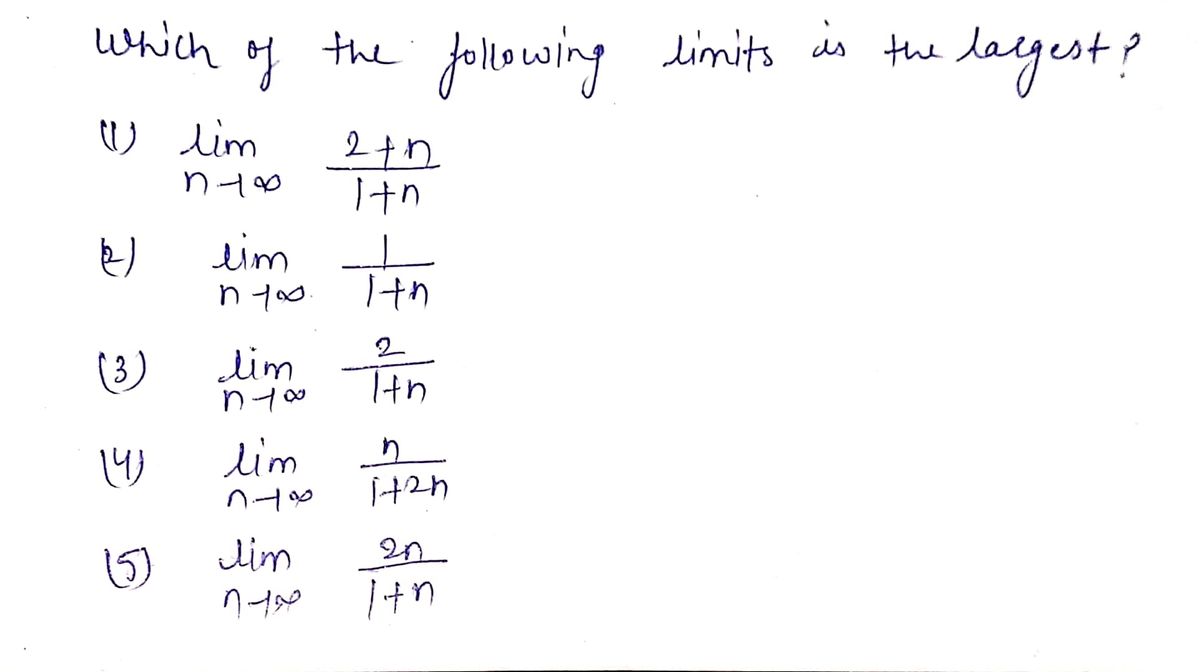 Which of the following limits is the largest?
(1) lim n→∞ (2+n)/(1+n)
(2) lim n→∞ 1/(1+n)
(3) lim n→∞ 2/(1+n)
(4) lim n→∞ n/(1+2n)
(5) lim n→∞ 2n/(1+n)